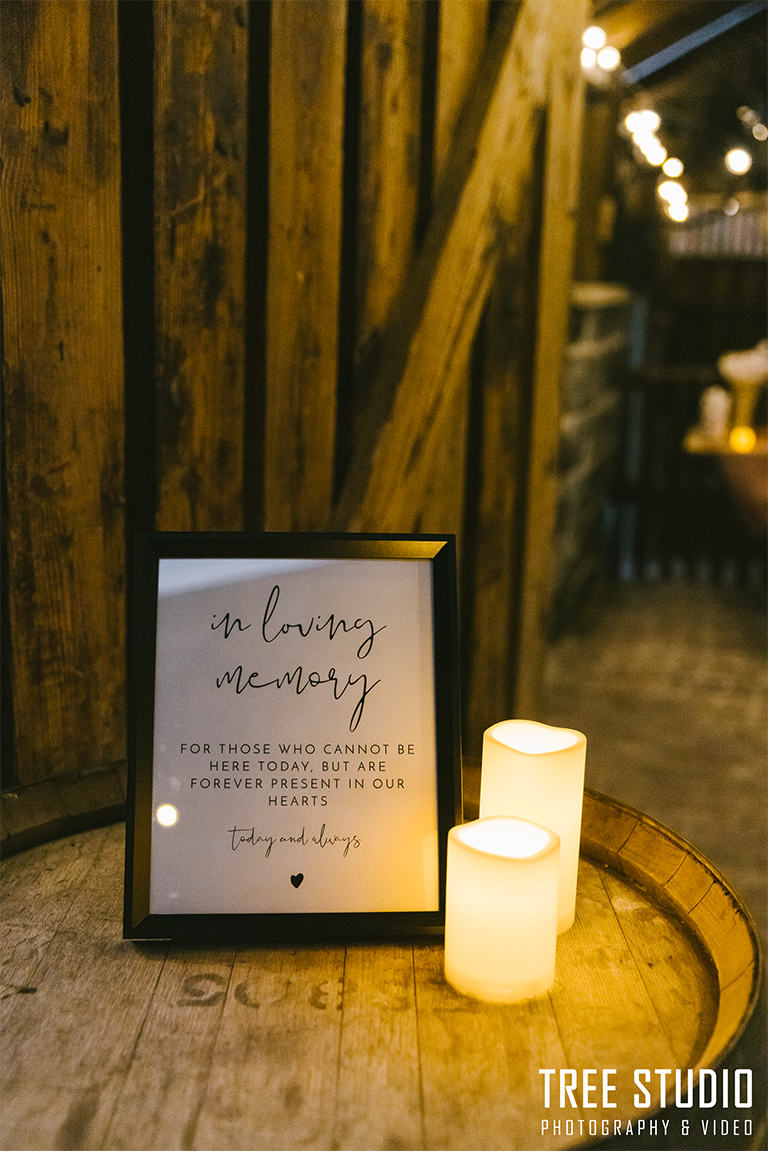 in loving
memory
FOR THOSE WHO CANNOT BE
HERE TODAY, BUT ARE
FOREVER PRESENT IN OUR
HEARTS
today and always
TREE STUDIO
PHOTOGRAPHY & VIDEO